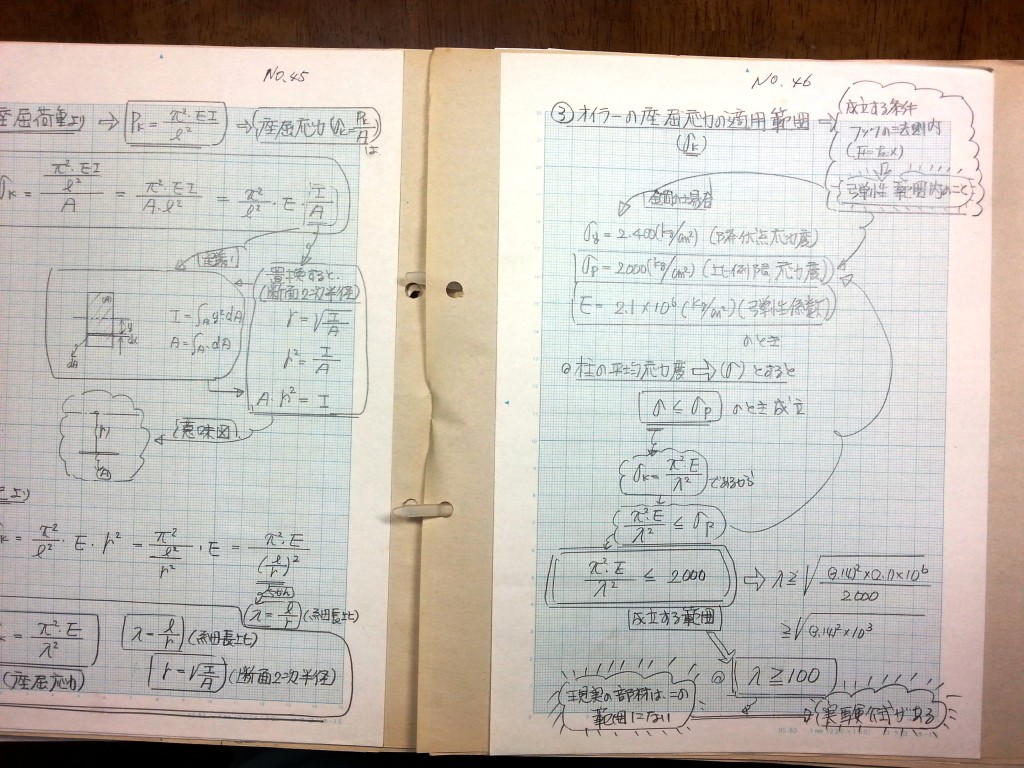 NO.45
座屈荷重より ⇒ Pk = π²·EI/l² ⇒ 座屈応力 (σk = Pk/A) は
σk = (π²·EI/l²)/A = π²·EI/A·l² = π²/l² · E · I/A
定義!
I = ∫A y²dA
A = ∫A·dA
y
dA
置換すると、
(断面2次半径)
r = √(I/A)
r² = I/A
A·r² = I
意味図
r
A
より
σk = π²/l² · E · r² = π²/(l²/r²) · E = π²·E/(l/r)²
λ = l/r (細長比)
σk = π²·E/λ²
(座屈応力)
λ = l/r (細長比)
r = √(I/A) (断面2次半径)
NO.46
③ オイラーの座屈応力の適用範囲
(σk)
成立する条件
フックの法則内
弾性範囲内のこと
鋼の場合
σy = 2.400 (kg/cm²) (降伏点応力度)
σp = 2000 (kg/cm²) (比例限応力度)
E = 2.1×10⁶ (kg/cm²) (弾性係数)
のとき
◎ 柱の平均応力度 ⇒ (σ) とすると
σ ≤ σp のとき成立
σk = π²·E/λ² であるから
π²·E/λ² ≤ σp
π²·E/λ² ≤ 2000 ⇒ λ ≥ √((3.14)²×(2.1)×10⁶/2000)
≥ √((3.14)²×10³)
成立する範囲
◎ λ ≥ 100
現実の部材はこの
範囲にない
実験公式がある